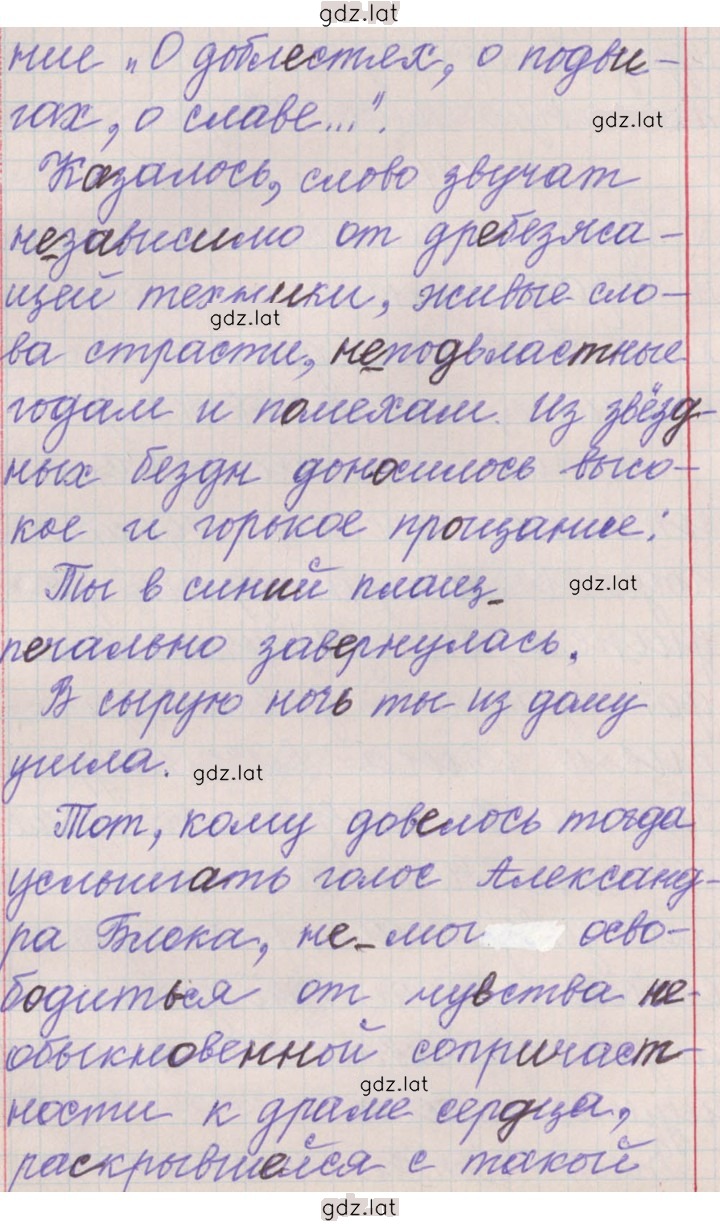 gdz.lat
ние „О доблестях, о подви-
гах, о славе...".
gdz.lat
Казалось, слово звучат
независимо от дребезжа-
щей техники, живые сло-
gdz.lat
ва страсти, неподвластные
годам и помехам. Из звёзд-
ных бездн доносилось высо-
кое и горькое прощание:
Ты в синий плащ
gdz.lat
печально завернулась.
В сырую ночь ты из дому
ушла.
gdz.lat
Тот, кому довелось тогда
услышать голос Александ-
ра Блока, не мог осво-
бодиться от чувства не-
обыкновенной сопричаст-
gdz.lat
ности к драме сердца,
раскрывшейся с такой
gdz.lat